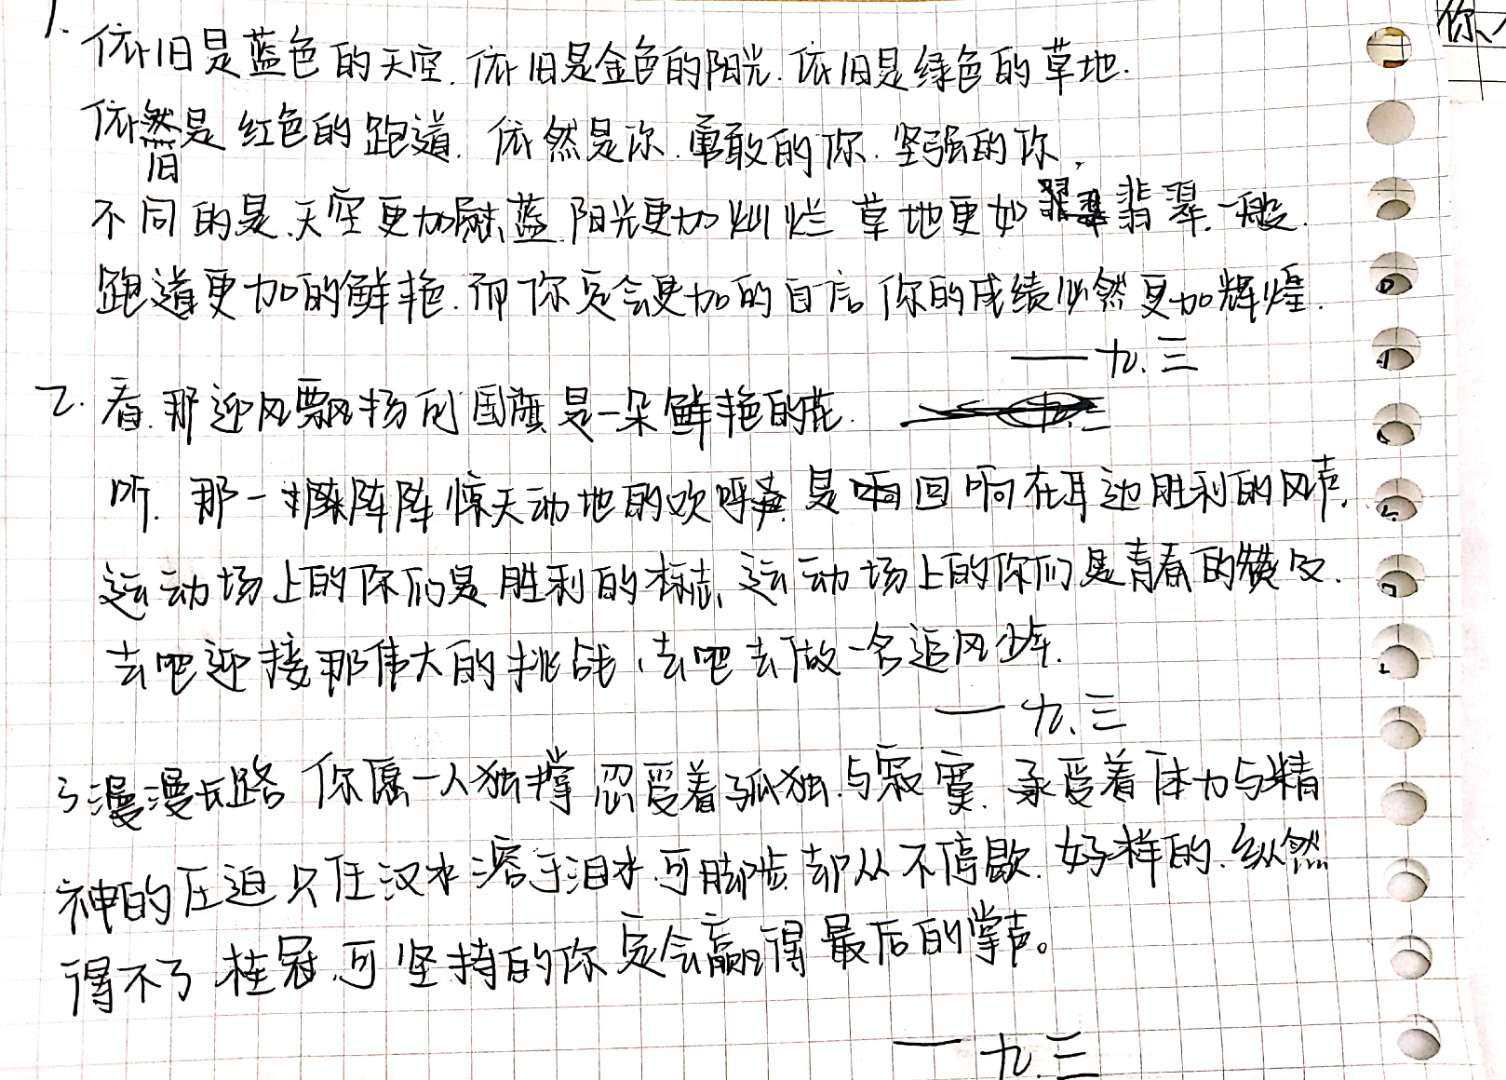 1.依旧是蓝色的天空.依旧是金色的阳光.依旧是绿色的草地.
依旧是红色的跑道.依然是你.勇敢的你.坚强的你,
不同的是.天空更加蔚蓝.阳光更加灿烂 草地更如翡翠一般.
跑道更加的鲜艳.而你定会更加的自信 你的成绩必然更加辉煌.
——九.三
2.看.那迎风飘扬的国旗是一朵鲜艳的花.
听.那一阵阵惊天动地的欢呼声是回响在耳边胜利的风声,
运动场上的你们是胜利的标志、运动场上的你们是青春的赞歌.
去吧迎接那伟大的挑战,去吧去做一名追风少年.
——九.三
3漫漫长路 你愿一人独撑 忍受着孤独与寂寞.承受着体力与精
神的压迫只任汉水溶于泪水.可脚步却从不停歇.好样的.纵然
得不了桂冠.可坚持的你定会赢得最后的掌声。
——九.三
你